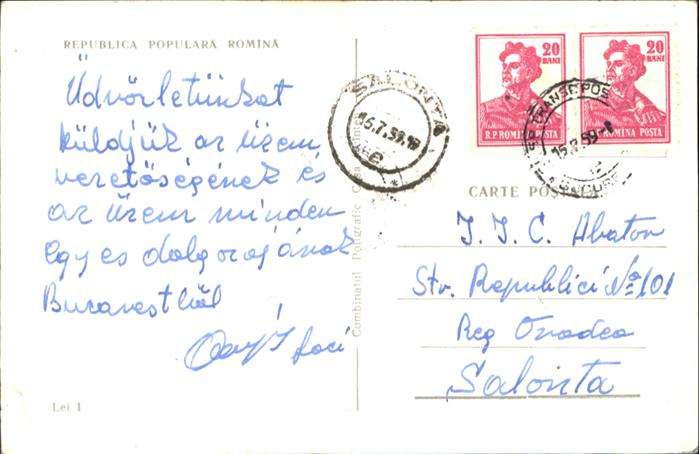 REPUBLICA POPULARĂ ROMÎNĂ
Üdvözletünket
küldjük az üzem
vezetőségének és
az üzem minden
egyes dolgozójának
Bucarestből
Laci
Lei 1
Combinatul Poligrafic Casa
SALONTA
15.7.59.18
20
BANI
R.P. ROMINA POSTA
20
BANI
ROMINA POSTA
15.7.59
CARTE POŞTALĂ
I. I. C. Abator
Str. Republicii No 101
Reg Oradea
Salonta